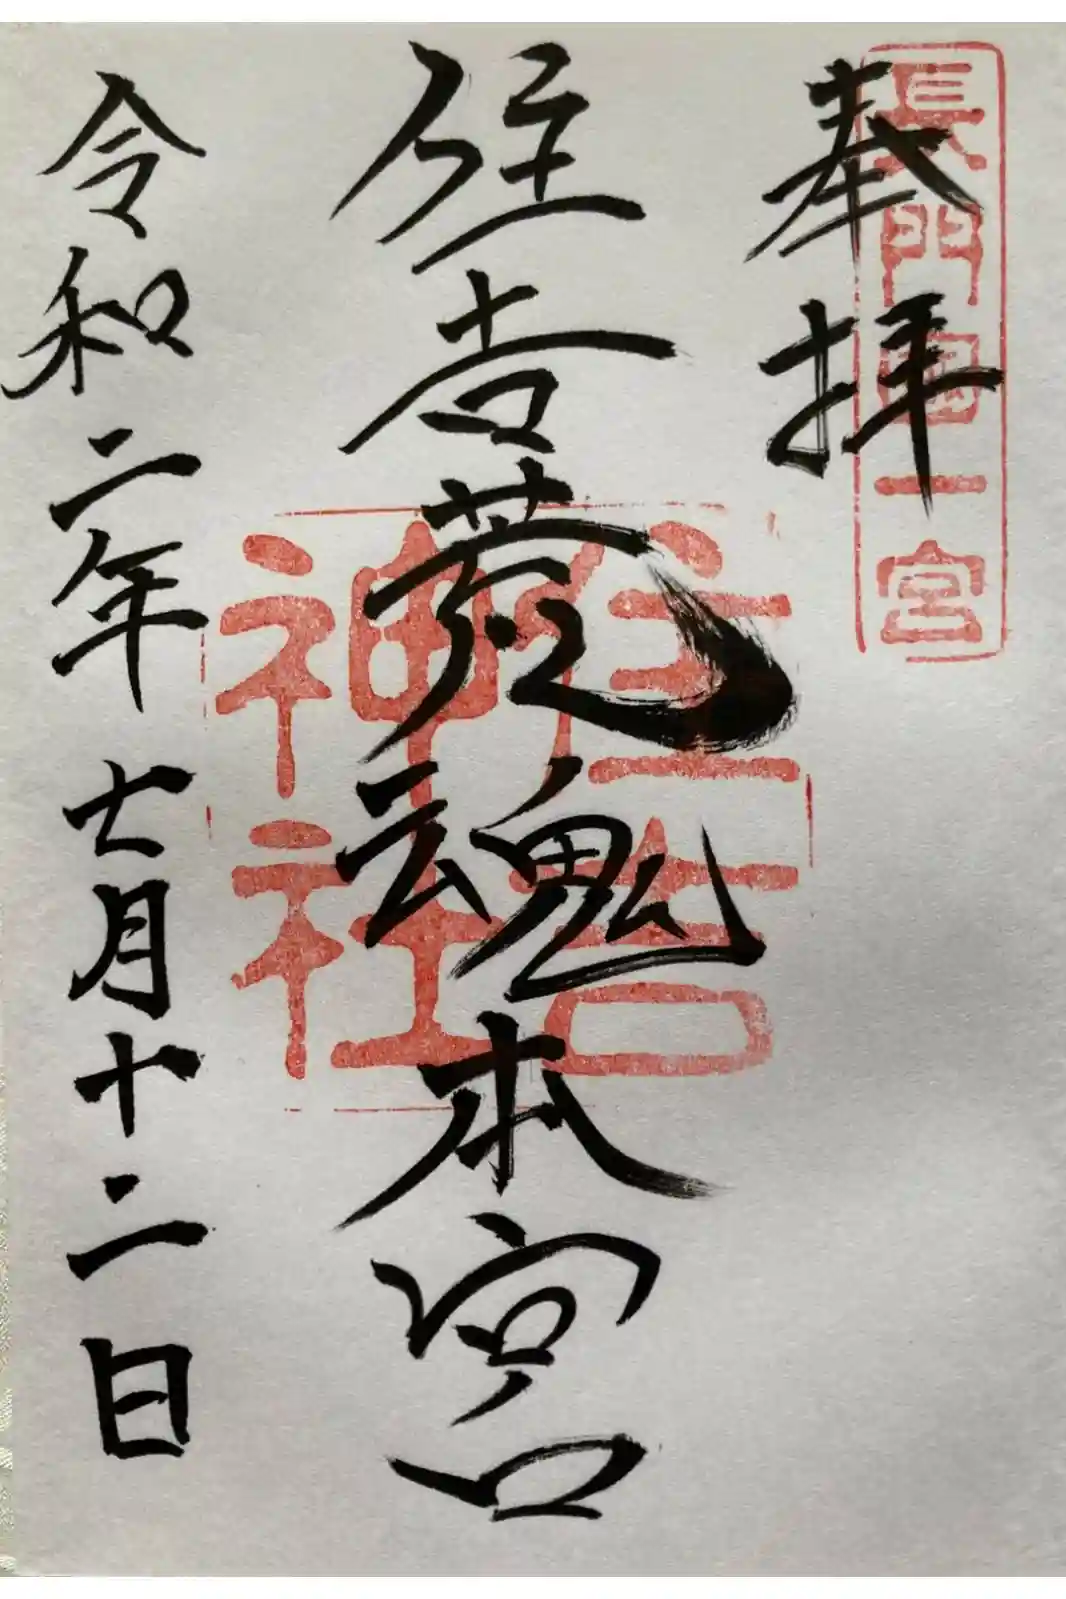 奉拝
長門國一宮
住吉荒魂本宮
住吉
神社
令和二年七月十二日